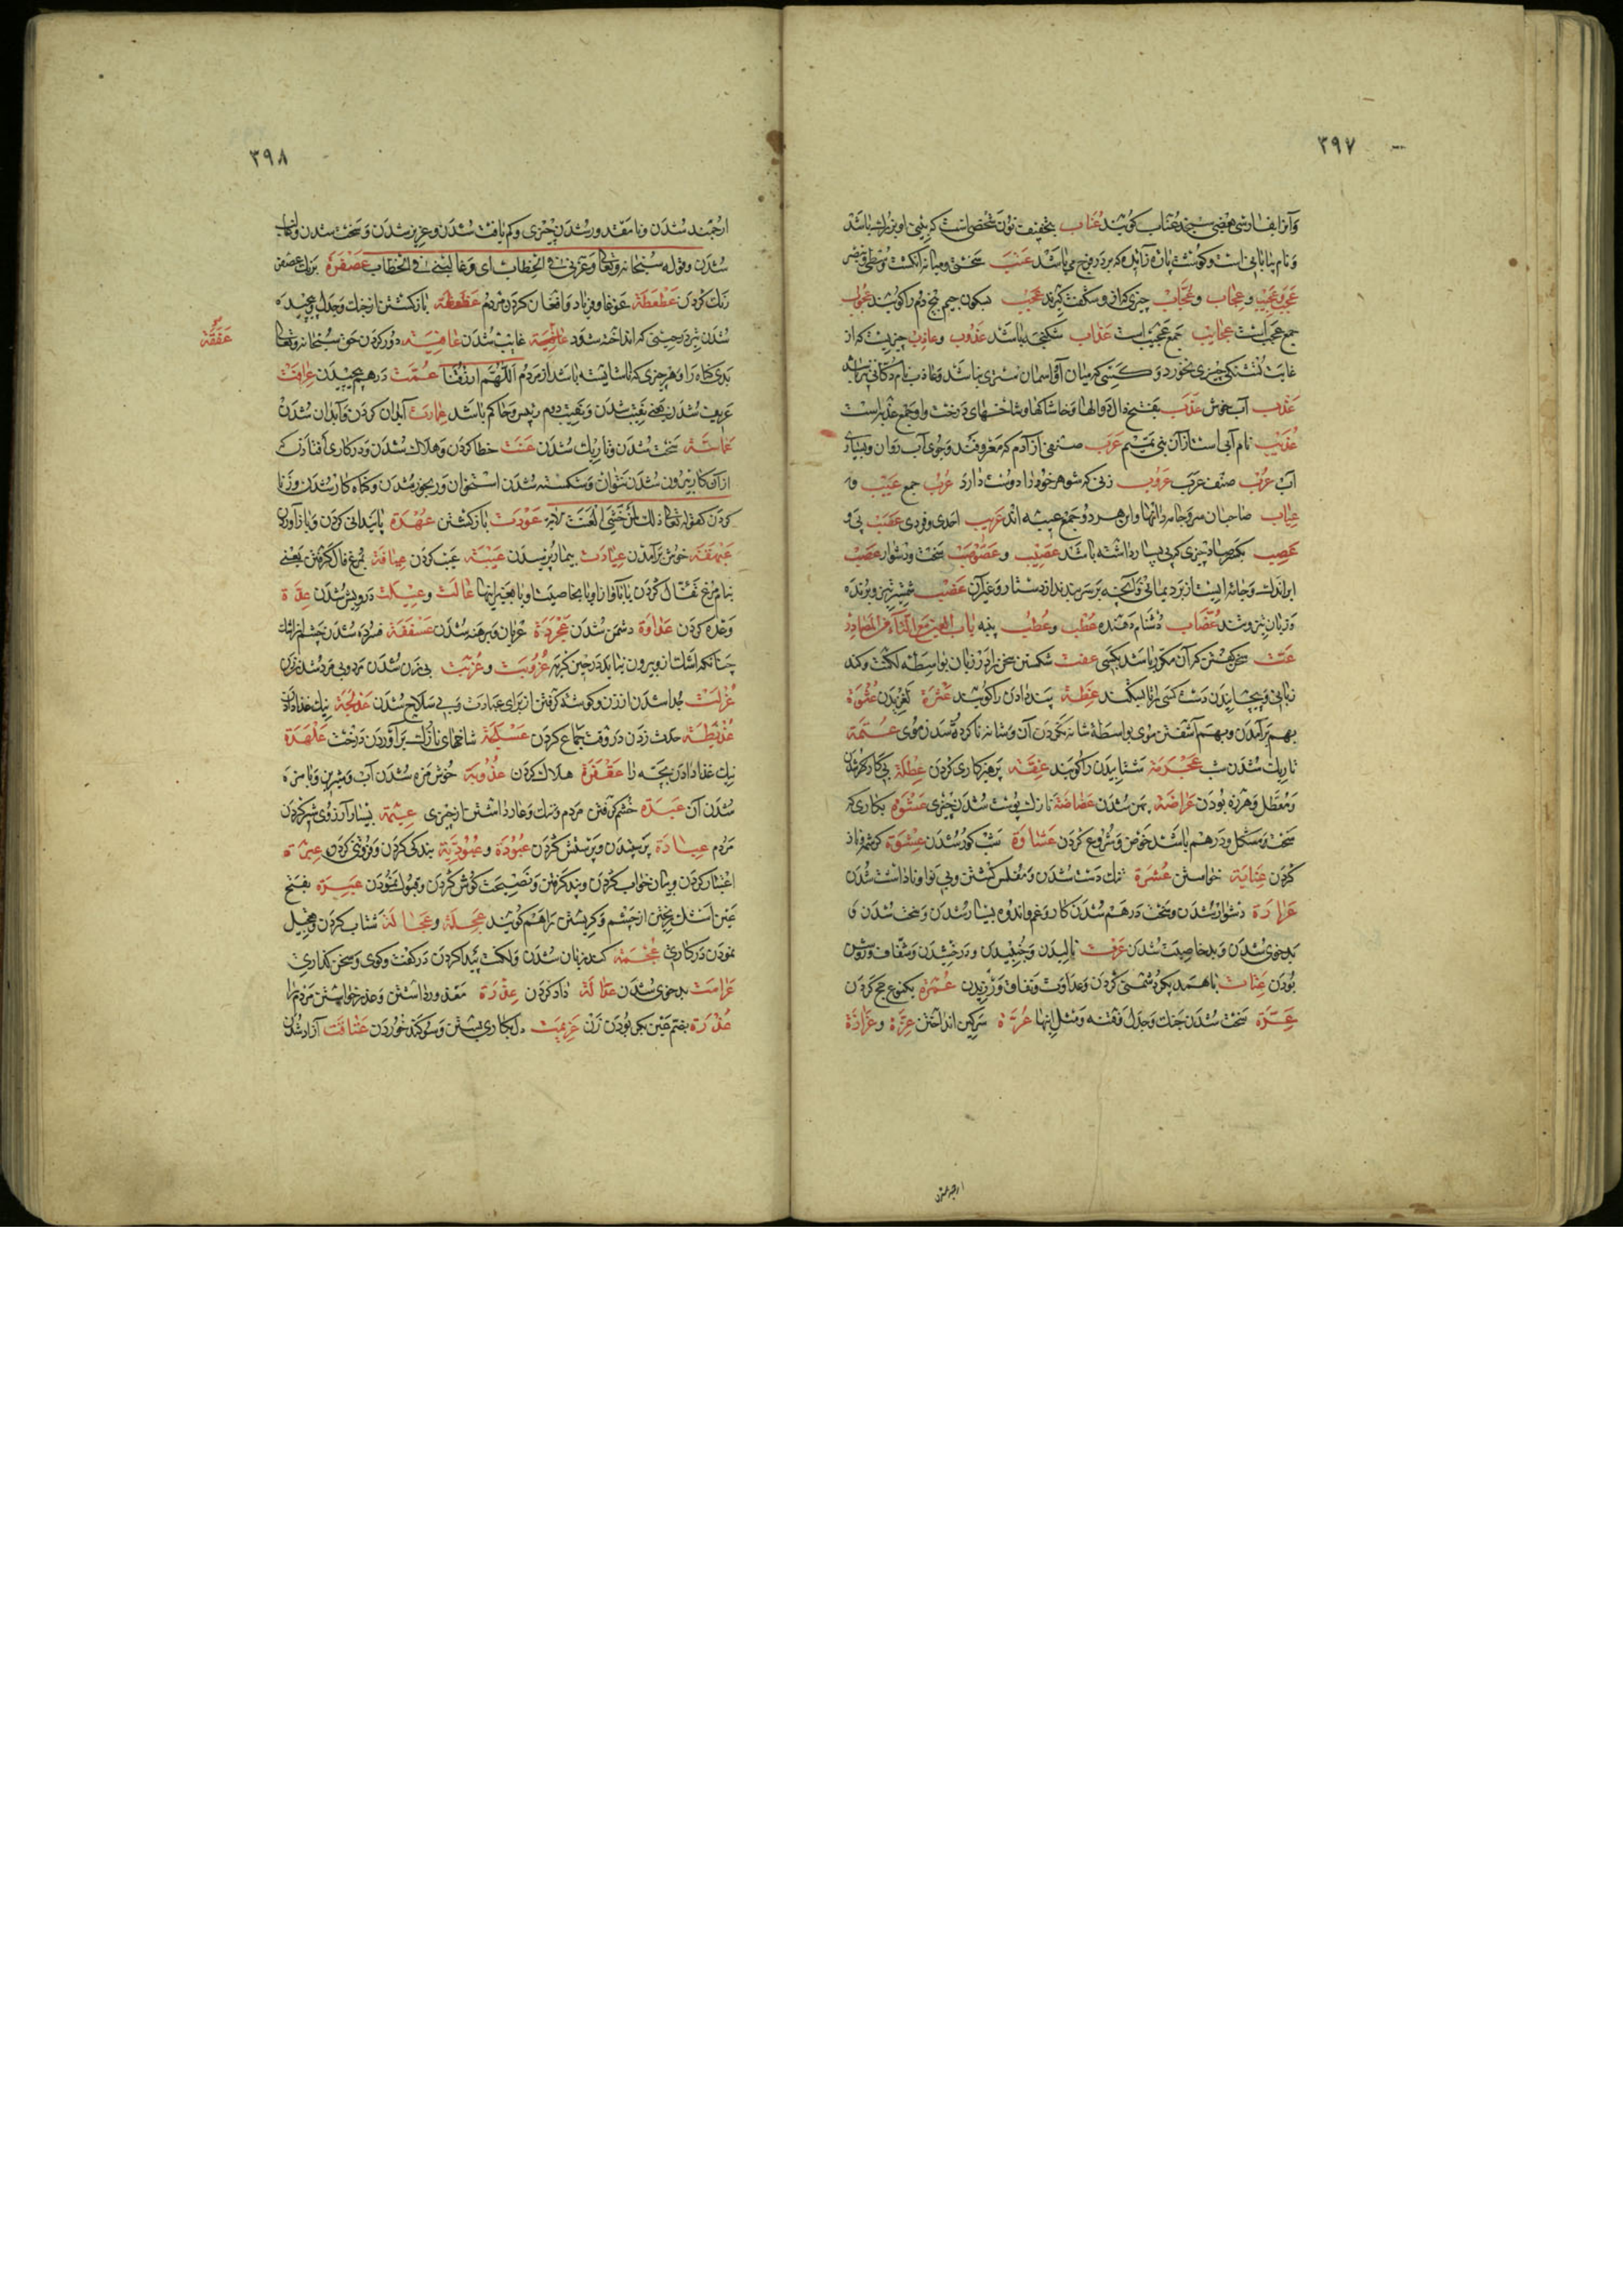 ٣٩٧
وآنرا بفارسی بعضی سنجد عناب گویند عُناب بتخفیف نون شخصی است که بینی او بزرك باشد
و نام بیابانی است و گوشت پاره زائد که بر در فرج می باشد عتب سختی و میانه انگشت وسطی و بنصر
عجب و عجیب و عجاب و عجّاب چیزی که از و شگفت گیرند عجب بسکون جیم بیخ دم را گویند عجوب
جمع عجب است عجایب جمع عجیب است عذاب شکنجه باشد عذوب و عاذب چیزیست که از
غایت تشنگی چیزی نخورد و کسی که میان او و آسمان ستری نباشد و عاذب نام مکانی نیز باشد
عذب آب خوش عذب بفتح ذال دوالها و خاشاکها و شاخهای درخت و او جمع عذبه است
عذیب نام آبی است از آن بنی تمیم عرب صنفی از آدم که معروفند و جوی آب روان و بسیاری
آب عرب صنف عرب عروب زنی که شوهر خود را دوست دارد عرب جمع عیب و
عیاب صاحبان سر و جامه دانها و این هر دو جمع عیبه اند عزیب احدی و فردی عقب پی و
عصب بکسر صاد چیزی که پی بسیار داشته باشد عصیب و عصوصب سخت و دشوار عصب
ابر اندك و جامه ایست از برد یمانی و آنچه بر سر بندند از دستار و غیر آن عضب شمشیر تیز و برنده
و زبان تیز و تند عضاب دشنام دهنده عطب و عطب پنبه باب العین مع التاء من المصادر
عتت سخن گفتن که آن مکرر باشد بکسی عفت شکستن سخن را در زبان بواسطه لکنت و کند
زبانی و پیچانیدن دست کسی را تا بشکند عظة پند دادن را گویند عثرة لغزیدن عثوة
بهم بر آمدن و بهم آشفتن موی بواسطه شانه نکردن آن و شانه نا کرده شدن موی عتمة
تاریك شدن شب عجرمة شتابیدن را گویند عفة پرهیزکاری کردن عطلة بی کار
و معطل و هرزه بودن عراضة پهن شدن عضاضة نازك پوست شدن چیزی عشوة بکاری که
سخت و مشکل و درهم باشد خوض و شروع کردن عشاوة شب کور شدن عشوة کرشمه و ناز
کردن عنایة خواستن عسرة تنك دست شدن و مفلس گشتن و بی نوا و ناداشت شدن
عرارة دشوار شدن و سخت درهم شدن کار و غم و اندوه بسیار شدن و سخت شدن و
بدخوی شدن و بدخاصیت شدن عرت نالیدن و جنبیدن و درخشیدن و شفاف و روشن
بودن عنات با همدیگر دشمنی کردن و عداوت و نفاق ورزیدن عمره یکنوع حج کردن
عرة سخت شدن جنك و جدل و فتنه و مثل اینها عرة سرگین انداختن عزة و عزازة
٣٩٨
ارجمند شدن و نا مقدور شدن چیزی و کم یافت شدن و عزیز شدن و سخت شدن و غالب
شدن و قوله سبحانه و تعالی وعزنی فی الخطاب ای وغالبنی فی الخطاب عصفرة برنك عصفر
رنك کردن عطعطة غوغا و فریاد و افغان کردن مردم عظعظة باز گشتن از جنك و جدل و پیچیده
شدن تیر در حینی که انداخته شود عافیة غایب شدن عافیة دور کردن حق سبحانه و تعالی
بدی گناه را و هر چیزی که ناشایسته باشد از مردم اللهم ارزقنا عمّت درهم پیچیدن عرافت
عریف شدن یعنی نقیب شدن و نقیب دوم رئیس و حاکم باشد عمارت آبادان کردن و آبادان شدن
عاسة سخت شدن و تاریك شدن عنت خطا کردن و هلاك شدن و در کاری افتادن که
از آن کار بیرون شدن نتوان و شکسته شدن استخوان و رنجور شدن و گناه کار شدن و زنا
کردن کقوله تعالی ذلك لمن خشی العنت الآیة عودت باز گشتن عهدة پایندانی کردن و باز آوردن
عبهقة خوش بر آمدن عیادت بیمار پرسیدن عیبة عیب کردن عیافة بمرغ فال گرفتن یعنی
بنام مرغ تفأل کردن یا بآواز او یا بخاصیت او یا بغیر اینها عالت و عیلت درویش شدن عدة
وعده کردن عداوة دشمن شدن عجردة عریان و برهنه شدن عسقفة فسرده شدن چشم از اشك
چنانکه اشك از و بیرون نیاید در حین گریه عزوبت و عزبت بی زن شدن مرد و بی مرد شدن زن
عزلت جدا شدن از زن و گوشه گرفتن از برای عبادت و بی سلاح شدن عذلجة نیك غذا دادن
عذیطة حدث زدن در وقت جماع کردن عسلجة شاخهای نازك بر آوردن درخت علهدة
نیك غذا دادن بچه را عفرة هلاك کردن عذوبة خوش مزه شدن آب و شیرین و بامزه
شدن آن عبدة خشم گرفتن مردم و ننك و عار داشتن از چیزی عیمة بسیار آرزوی شیر کردن
مردم عبادة پرستیدن و پرستش کردن عبودة و عبودیة بندگی کردن و فروتنی کردن عبرة
اعتبار کردن و بیان خواب کردن و پند گرفتن و نصیحت گوش کردن و قبول نمودن عبرة بفتح
عین اشك ریختن از چشم و گریستن را هم گویند عجلة و عجالة شتاب کردن و تعجیل
نمودن در کاری عجمة کند زبان شدن و لکنت پیدا کردن در گفت و گوی و سخن گذاری
عرامت بدخوی شدن عدالة داد کردن عذرة معذور داشتن و عذر خواستن مردم را
عذرة بضم عین بکر بودن زن عزیمت دل بکاری بستن و سوگند خوردن عتاقت آزاد شدن